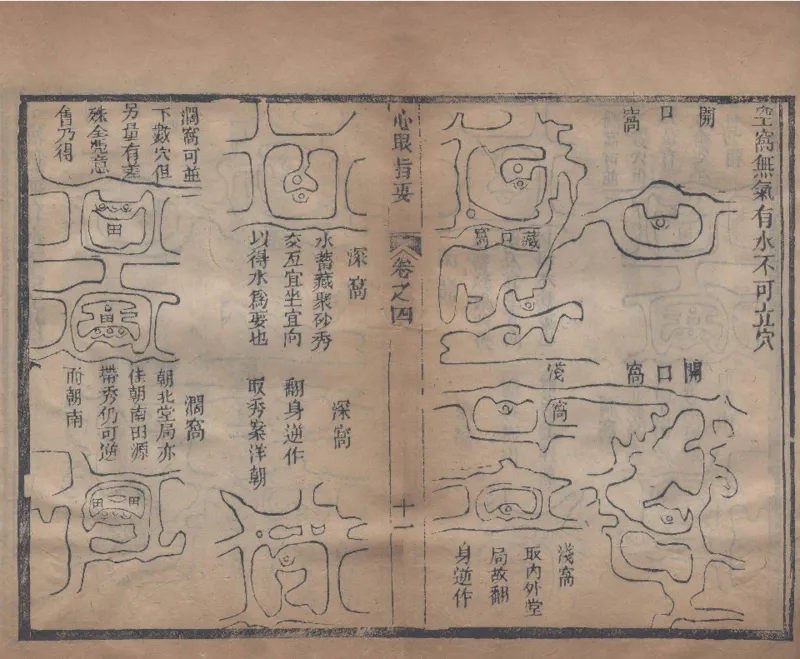 空窩無氣有水不可立穴
開口窩
藏口窩
開口窩
淺窩
淺窩
取內外堂
局故翻
身逆作
心眼指要
卷之四
十一
深窩
水蓄藏聚砂秀
交互宜坐宜向
以得水為要也
深窩
翻身逆作
取秀案洋朝
濶窩可並
下數穴但
另量有差
殊全憑意
會乃得
濶窩
朝北堂局亦
佳朝南田源
帶秀仍可逆
而朝南
田
田
田
田